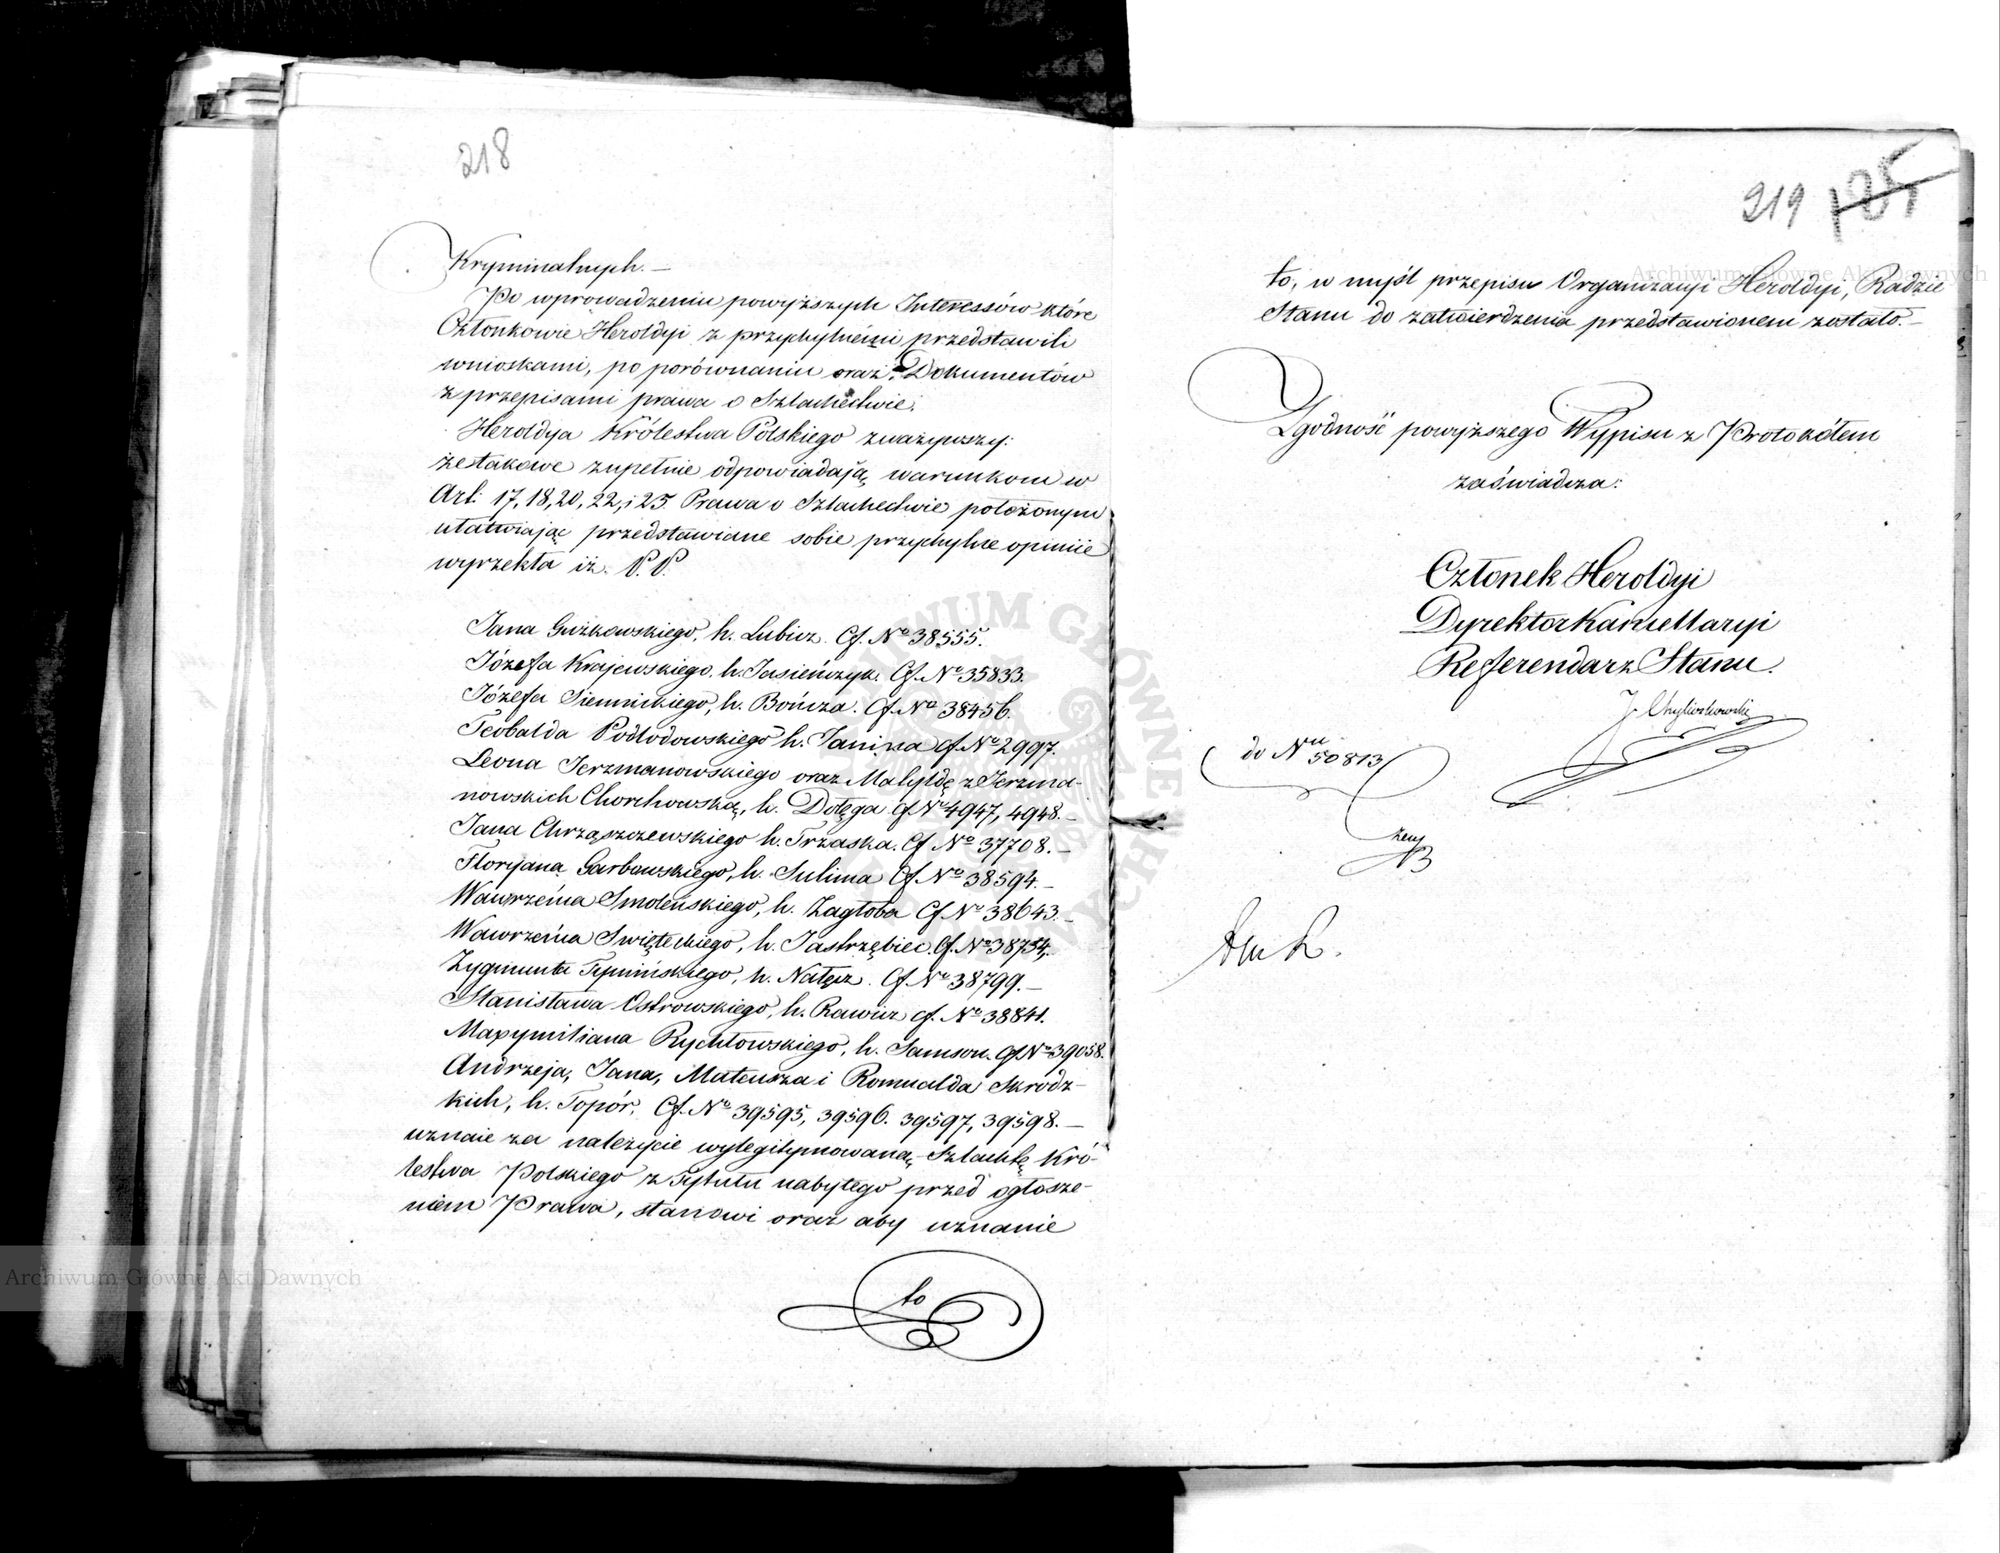 218
Kryminalnych. —
Po wprowadzeniu powyższych Interessów które
Członkowie Heroldyi z przychylnémi przedstawili
wnioskami, po porównaniu oraz Dokumentów
z przepisami prawa o Szlachectwie;
Heroldya Królestwa Polskiego zważywszy:
że takowe zupełnie odpowiadają warunkom w
Art: 17, 18, 20, 22, i 25. Prawa o Szlachectwie położonym
ułatwiając przedstawiane sobie przychylne opiniie
wyrzekła iż. P.P.
Jana Guzkowskiego, h. Lubicz. Cf. No 38555.
Józefa Krajewskiego, h. Jasieńczyk. Cf. No 35833.
Józefa Siemnickiego, h. Bończa. Cf. No 38456.
Teobalda Podłodowskiego h. Janina Cf. No 2997.
Leona Jerzmanowskiego oraz Matyldę z Jerzma-
nowskich Chorchowską, h. Dołęga Cf No 4947, 4948. —
Jana Chrząszczewskiego h. Trzaska. Cf No 37708. —
Floryana Garbowskiego, h. Sulima Cf. No 38594. —
Wawrzeńca Smoleńskiego, h. Zagłoba Cf. No 38643. —
Wawrzeńca Swięteckiego, h. Jastrzębiec. Cf. No 38754.
Zygmunta Tymińskiego, h. Nałęcz. Cf. No 38799. —
Stanisława Ostrowskiego, h. Rawicz Cf. No 38841.
Maxymiliana Rychłowskiego, h. Samson. Cf No 39058.
Andrzeja, Jana, Mateusza i Romualda Skrodz-
kich, h. Topór. Cf. No 39595, 39596. 39597, 39598. —
uznaie za należycie wylegitymowaną Szlachtę Kró-
lestwa Polskiego z Tytułu nabytego przed ogłosze-
niem Prawa, stanowi oraz aby uznanie
to
219 125
to, w myśl przepisu Organizacyi Heroldyi, Radzie
Stanu do zatwierdzenia przedstawionem zostało. —
Zgodność powyższego Wypisu z Protokółem
zaświadcza:
Członek Heroldyi
Dyrektor Kancellaryi
Referendarz Stanu.
do Nru 50813
Archiwum Główne Akt Dawnych
Archiwum Główne Akt Dawnych